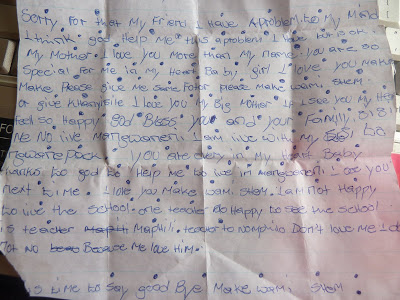 Sorry for that my friend I have a problem to my Mind
I think god Help Me this a problem I have
My Mother. I love you More than My name. you are so
Special for me in my Heart Baby girl I love you make
Make Please give me same please make wami Sitem
or give Khanyisile I Love you My Big Mother. If I see you My Heart
feel so Happy God Bless you and your Family.
Me No live I am live with my to
you are every in my Heart Baby
thanks to god to Help Me to live in I love you
next time. I love you Make wami Sitem. I am not Happy
to live the School. one teacher do Happy to see the school
is teacher Maphili. teacher to nomphilo Don't love me I do
not no Because me love him.
is time to say good Bye Make wami Sitem